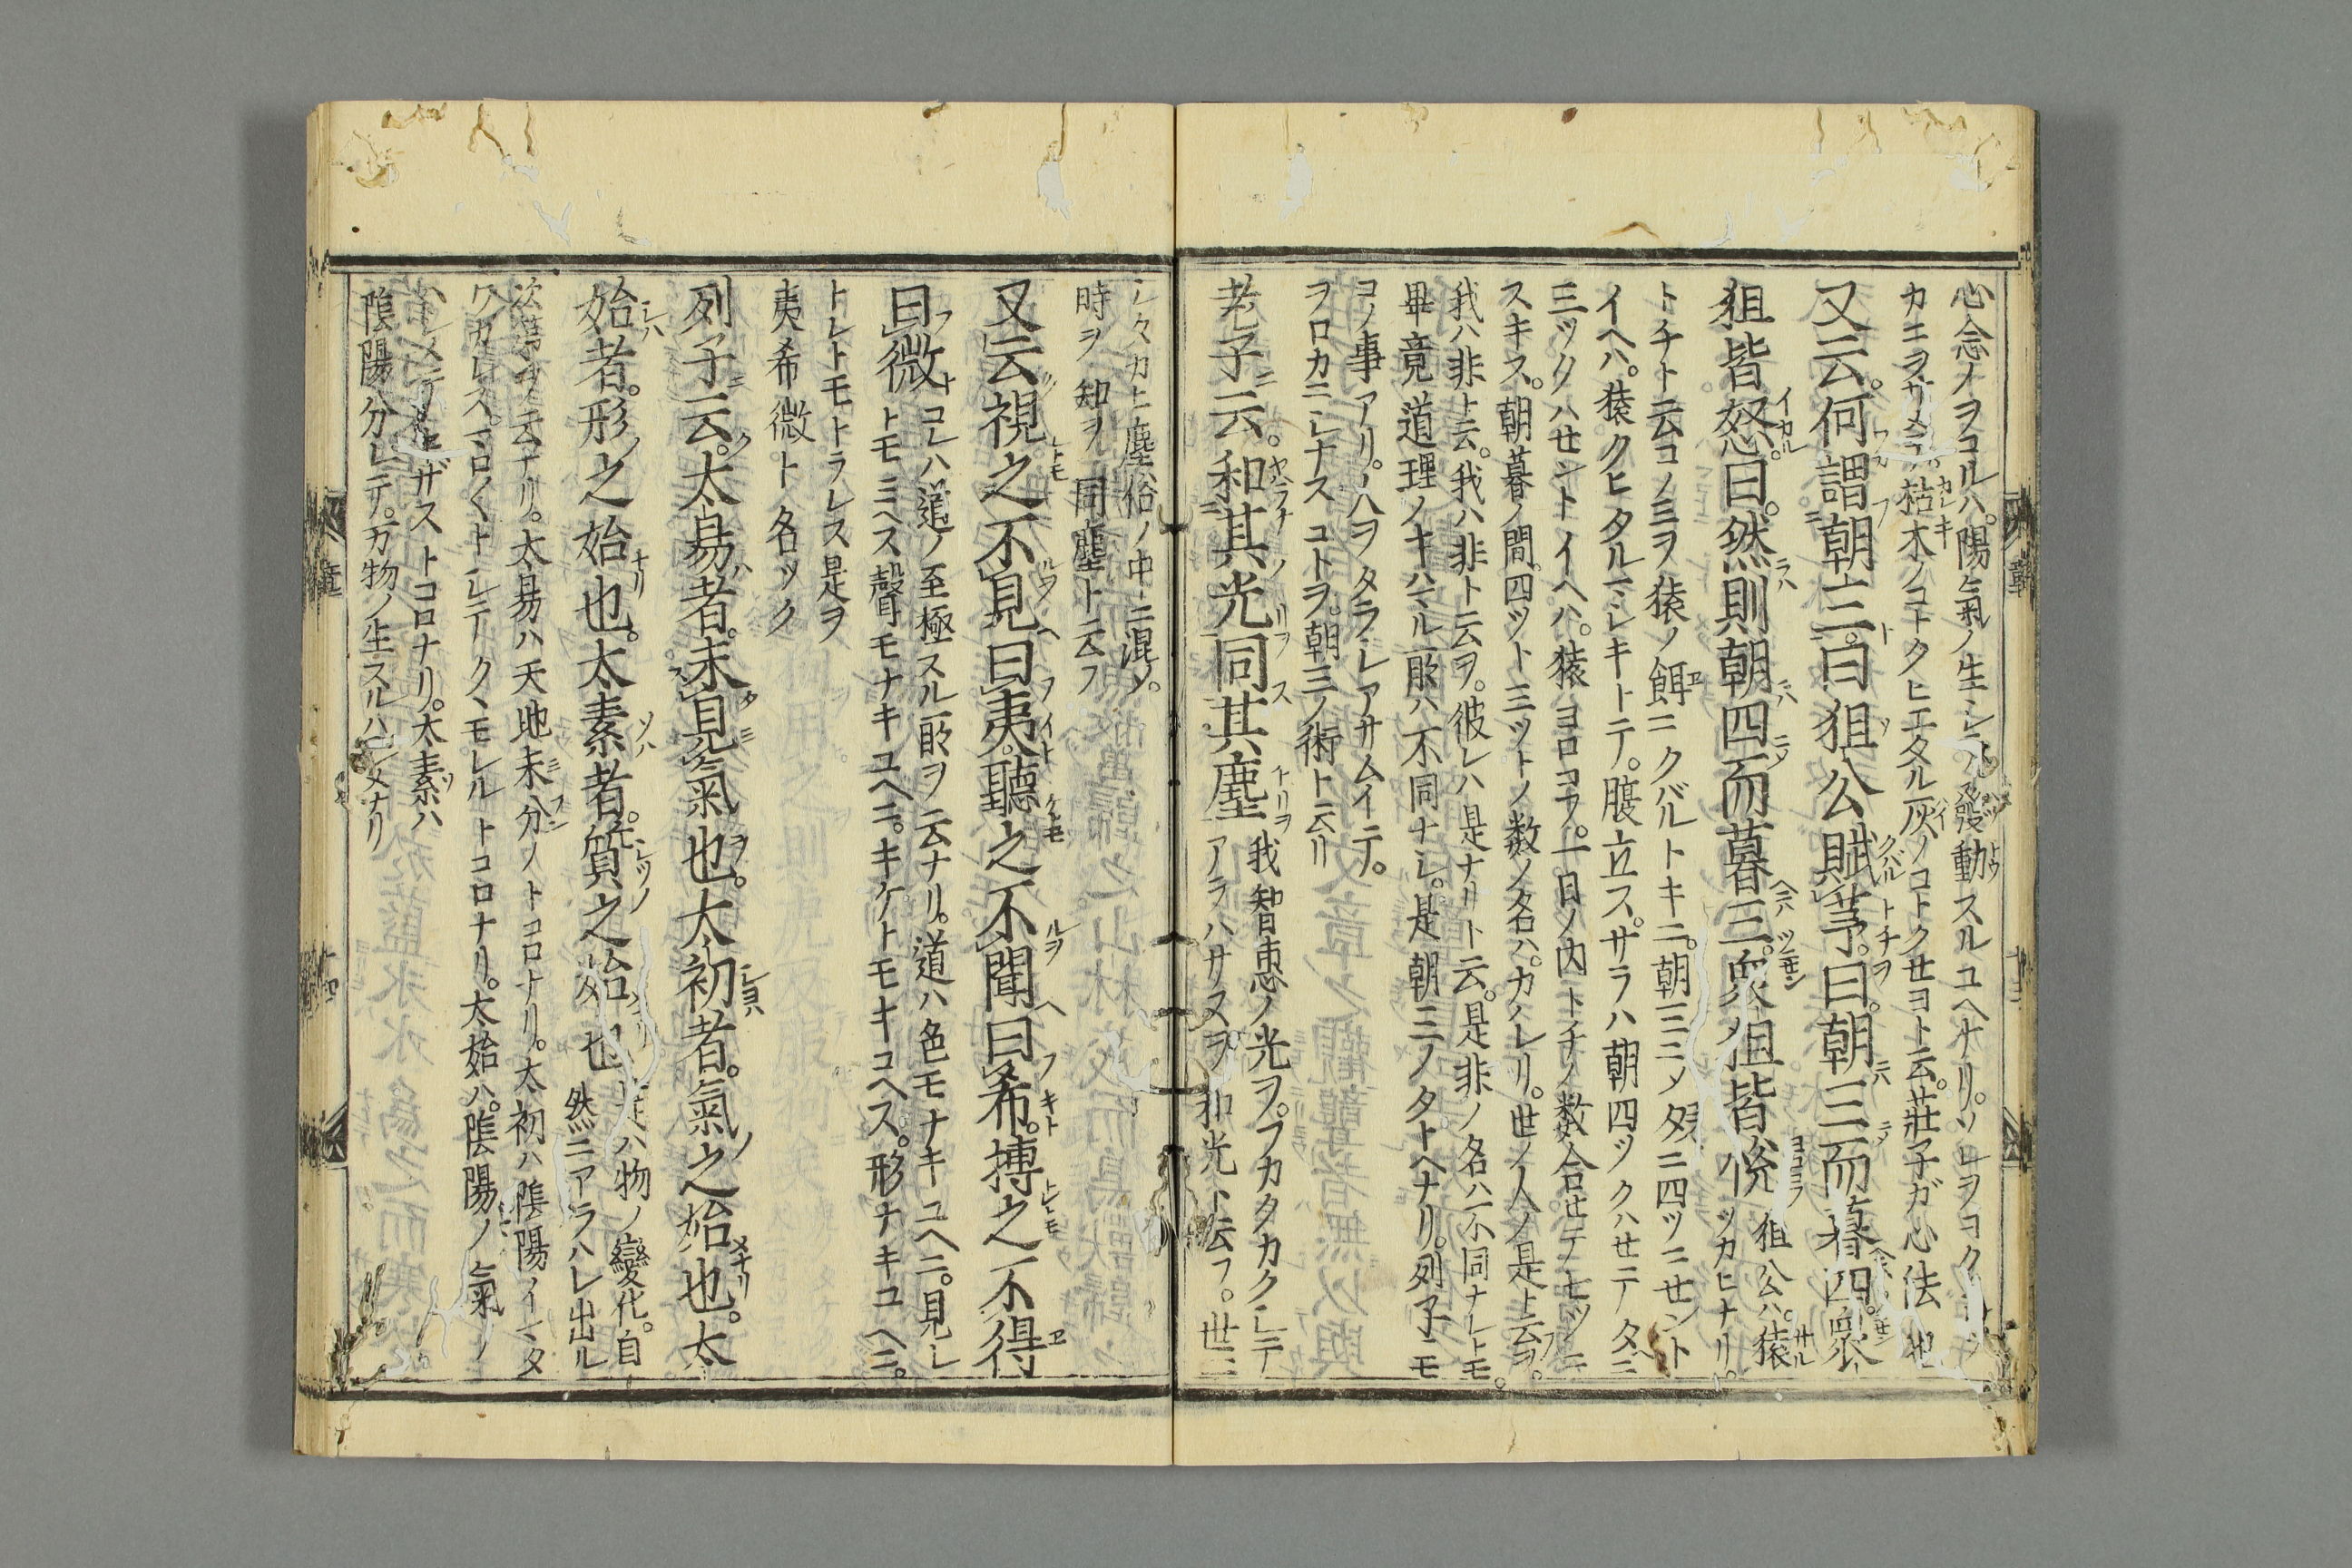 心念ノヲコルハ。陽氣ノ生シテ發動スルユヘナリ。ソレヲヨク
カニヲサメテ。枯木ノコトクヒエタル灰ノコトクセヨト云。莊子ガ心法也
又云。何謂朝三。曰狙公賦芧。曰。朝三而暮四。衆
狙皆怒。曰。然則朝四而暮三。衆狙皆悅 狙公ハ。猿ツカヒナリ。
トチト云コノミヲ猿ノ餌ニクバルトキニ。朝ニ三ツ夕ニ四ツニせント
イヘハ。猿クヒタルマシキトテ。腹立ス。サラハ朝四ツクハせテ夕ニ
三ツクハせントイヘハ。猿ヨロコフ。一日ノ内トチノ数合せテ七ツニ
スキス。朝暮ノ間。四ツト三ツトノ数ノ名ハ。カハレリ。世ノ人ノ是ト云ヲ。
我ハ非ト云。我ハ非ト云ヲ。彼レハ是ナリト云。是非ノ名ハ不同ナレトモ。
畢竟道理ノキハマル所ハ不同ナシ。是朝三ノタトヘナリ。列子ニモ
コノ事アリ。人ヲタラシアサムイテ。
ヲロカニシナスコトヲ。朝三ノ術ト云リ
老子云。和其光同其塵 我智恵ノ光ヲ。フカタカクシテ
アラハサヌヲ和光ト云フ。世ニ
シタカヒ塵俗ノ中ニ混メ。
時ヲ知ヲ同塵ト云フ
又云視之不見曰夷。聽之不聞曰希。搏之不得
曰微 コレハ道ノ至極スル所ヲ云ナリ。道ハ色モナキユヘニ。見レ
トモミヘス聲モナキユヘニ。キケトモキコヘス。形ナキユヘニ。
トレトモトラレス是ヲ
夷希微ト名ツク
列子云。太易者。未見氣也。太初者。氣之始也。太
始者。形之始也。太素者。質之始也 ハ物ノ變化。自
然ニアラハレ出ル
次第ヲ云ナリ。太易ハ天地未分ノトコロナリ。太初ハ陰陽イマタ
ワカレス。マロクトシテクヽモレルトコロナリ。太始ハ。陰陽ノ氣ノ
ハシメテキザストコロナリ。太素ハ
陰陽分レテ。万物ノ生スルハシメナリ